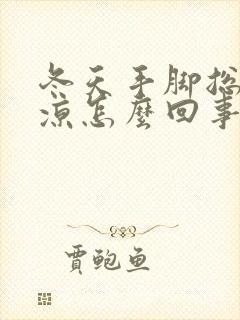 冬天手脚总
凉怎麼回事
賈鲍鱼